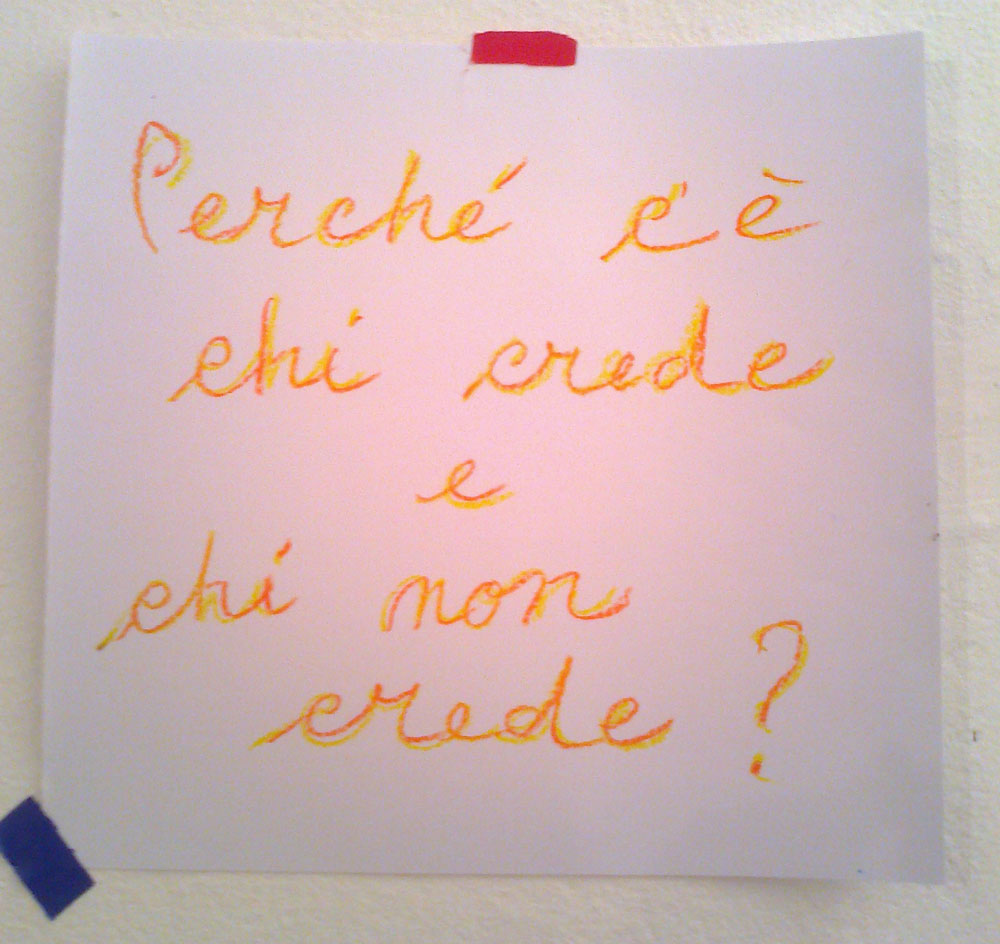 Perché c'è
chi crede
e
chi non
crede ?